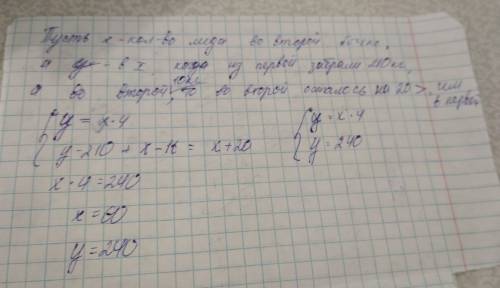 Пусть x - кол-во меда во второй бочке,
а y - в x, когда из первой забрали 210 кг,
а во второй 10кг, то во второй осталось на 20 >, чем в первой
{ y = x·4
{ y-210 + x-16 = x+20
{ y = x·4
{ y = 240
x·4=240
x=60
y=240